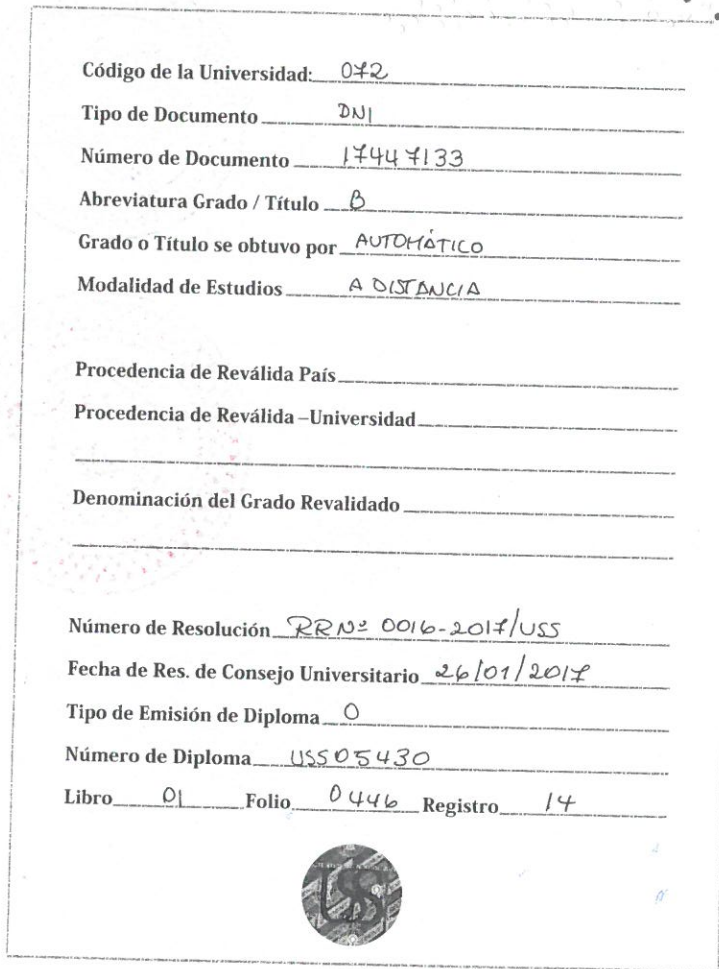 Código de la Universidad: 072
Tipo de Documento DNI
Número de Documento 17447133
Abreviatura Grado / Título B
Grado o Título se obtuvo por AUTOMÁTICO
Modalidad de Estudios A DISTANCIA
Procedencia de Reválida País
Procedencia de Reválida –Universidad
Denominación del Grado Revalidado
Número de Resolución RR Nº 0016-2017/USS
Fecha de Res. de Consejo Universitario 26/01/2017
Tipo de Emisión de Diploma O
Número de Diploma USS05430
Libro 01 Folio 0446 Registro 14
USS